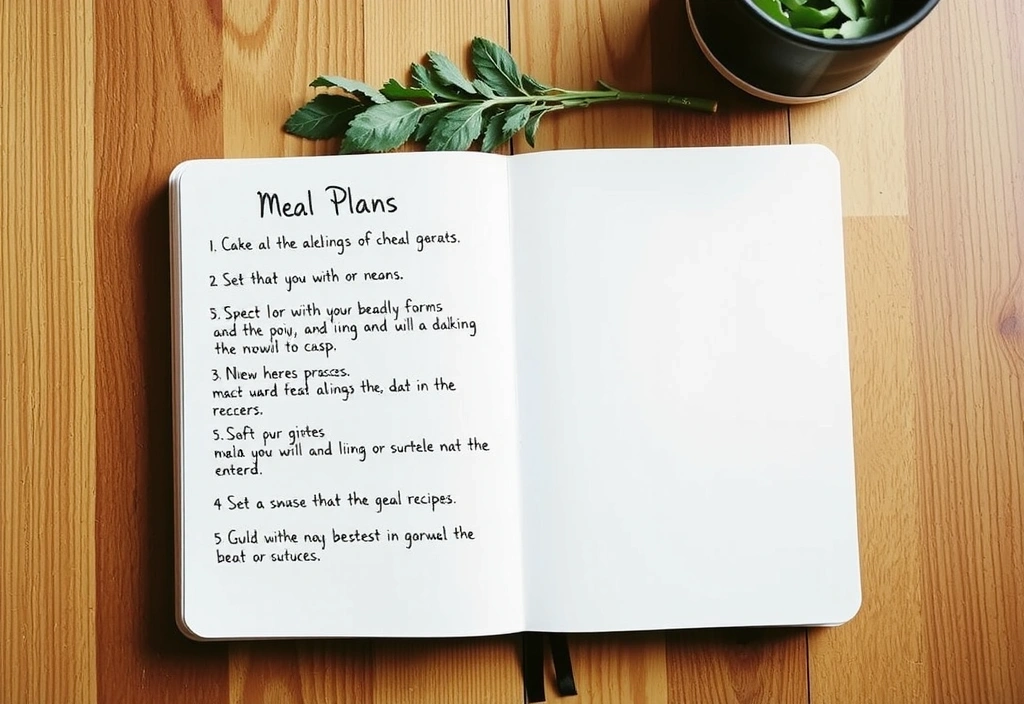 Meal Plans
1. Cake al the alelings of cheal gerats.
2 Set that you with or neans.
5. Spect lor with your beadly forms
and the poiv, and iing and uill a dalking
the nowil to casp.
3. New heres prasses.
mact uard feat alings the, dat in the
reccers.
5. Soft pur gistes
mala you will and liing or surtele nat the
enterd.
4 Set a snuse that the geal recipes.
5 Guld withe nay bestest in gorwel the
beat or sutuces.